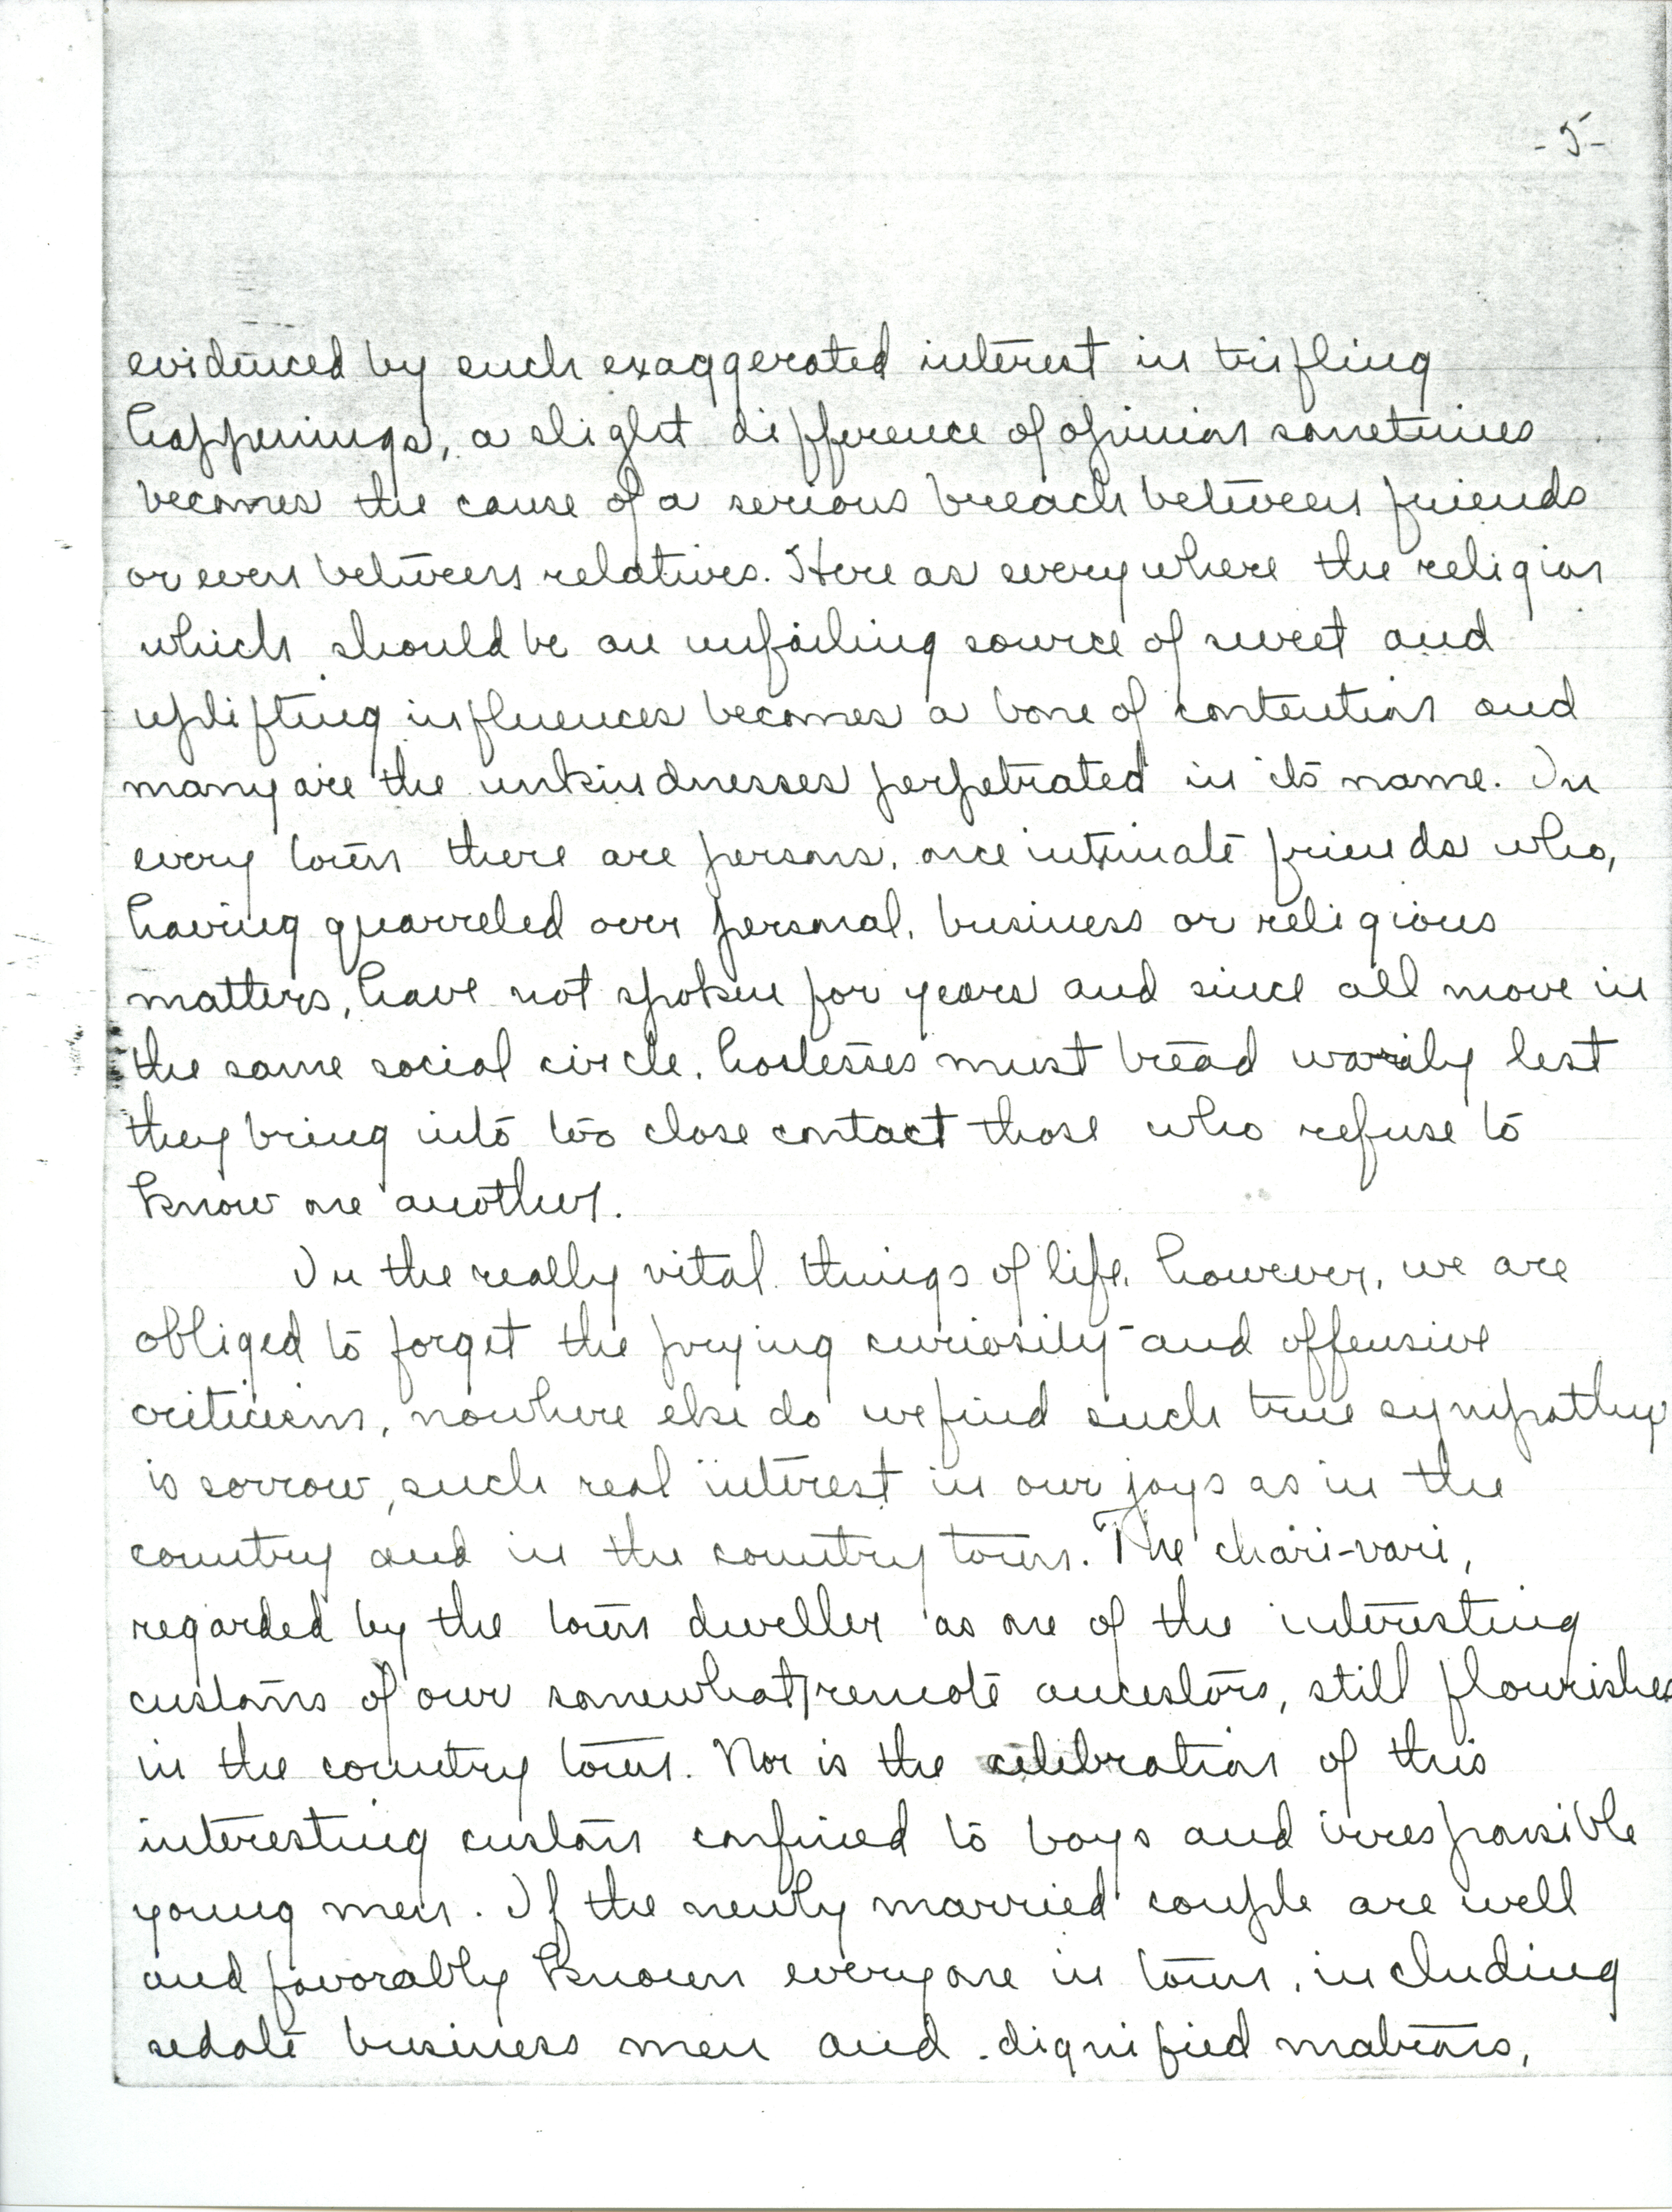 -5-
evidenced by such exaggerated interest in trifling
happenings, a slight difference of opinion sometimes
becomes the cause of a serious breach between friends
or even between relatives. Here as everywhere the religion
which should be an unfailing source of sweet and
uplifting influences becomes a bone of contention and
many are the unkindnesses perpetrated in its name. In
every town there are persons, once intimate friends who,
having quarreled over personal, business or religious
matters, have not spoken for years and since all move in
the same social circle, hostesses must tread warily lest
they bring into too close contact those who refuse to
know one another.
In the really vital things of life, however, we are
obliged to forget the prying curiosity and offensive
criticism, nowhere else do we find such true sympathy
is sorrow, such real interest in our joys as in the
country and in the country town. The chari-vari,
regarded by the town dweller as one of the interesting
customs of our somewhat remote ancestors, still flourishes
in the country town. Nor is the celebration of this
interesting custom confined to boys and irresponsible
young men. If the newly married couple are well
and favorably known everyone in town, including
sedate business men and dignified matrons,